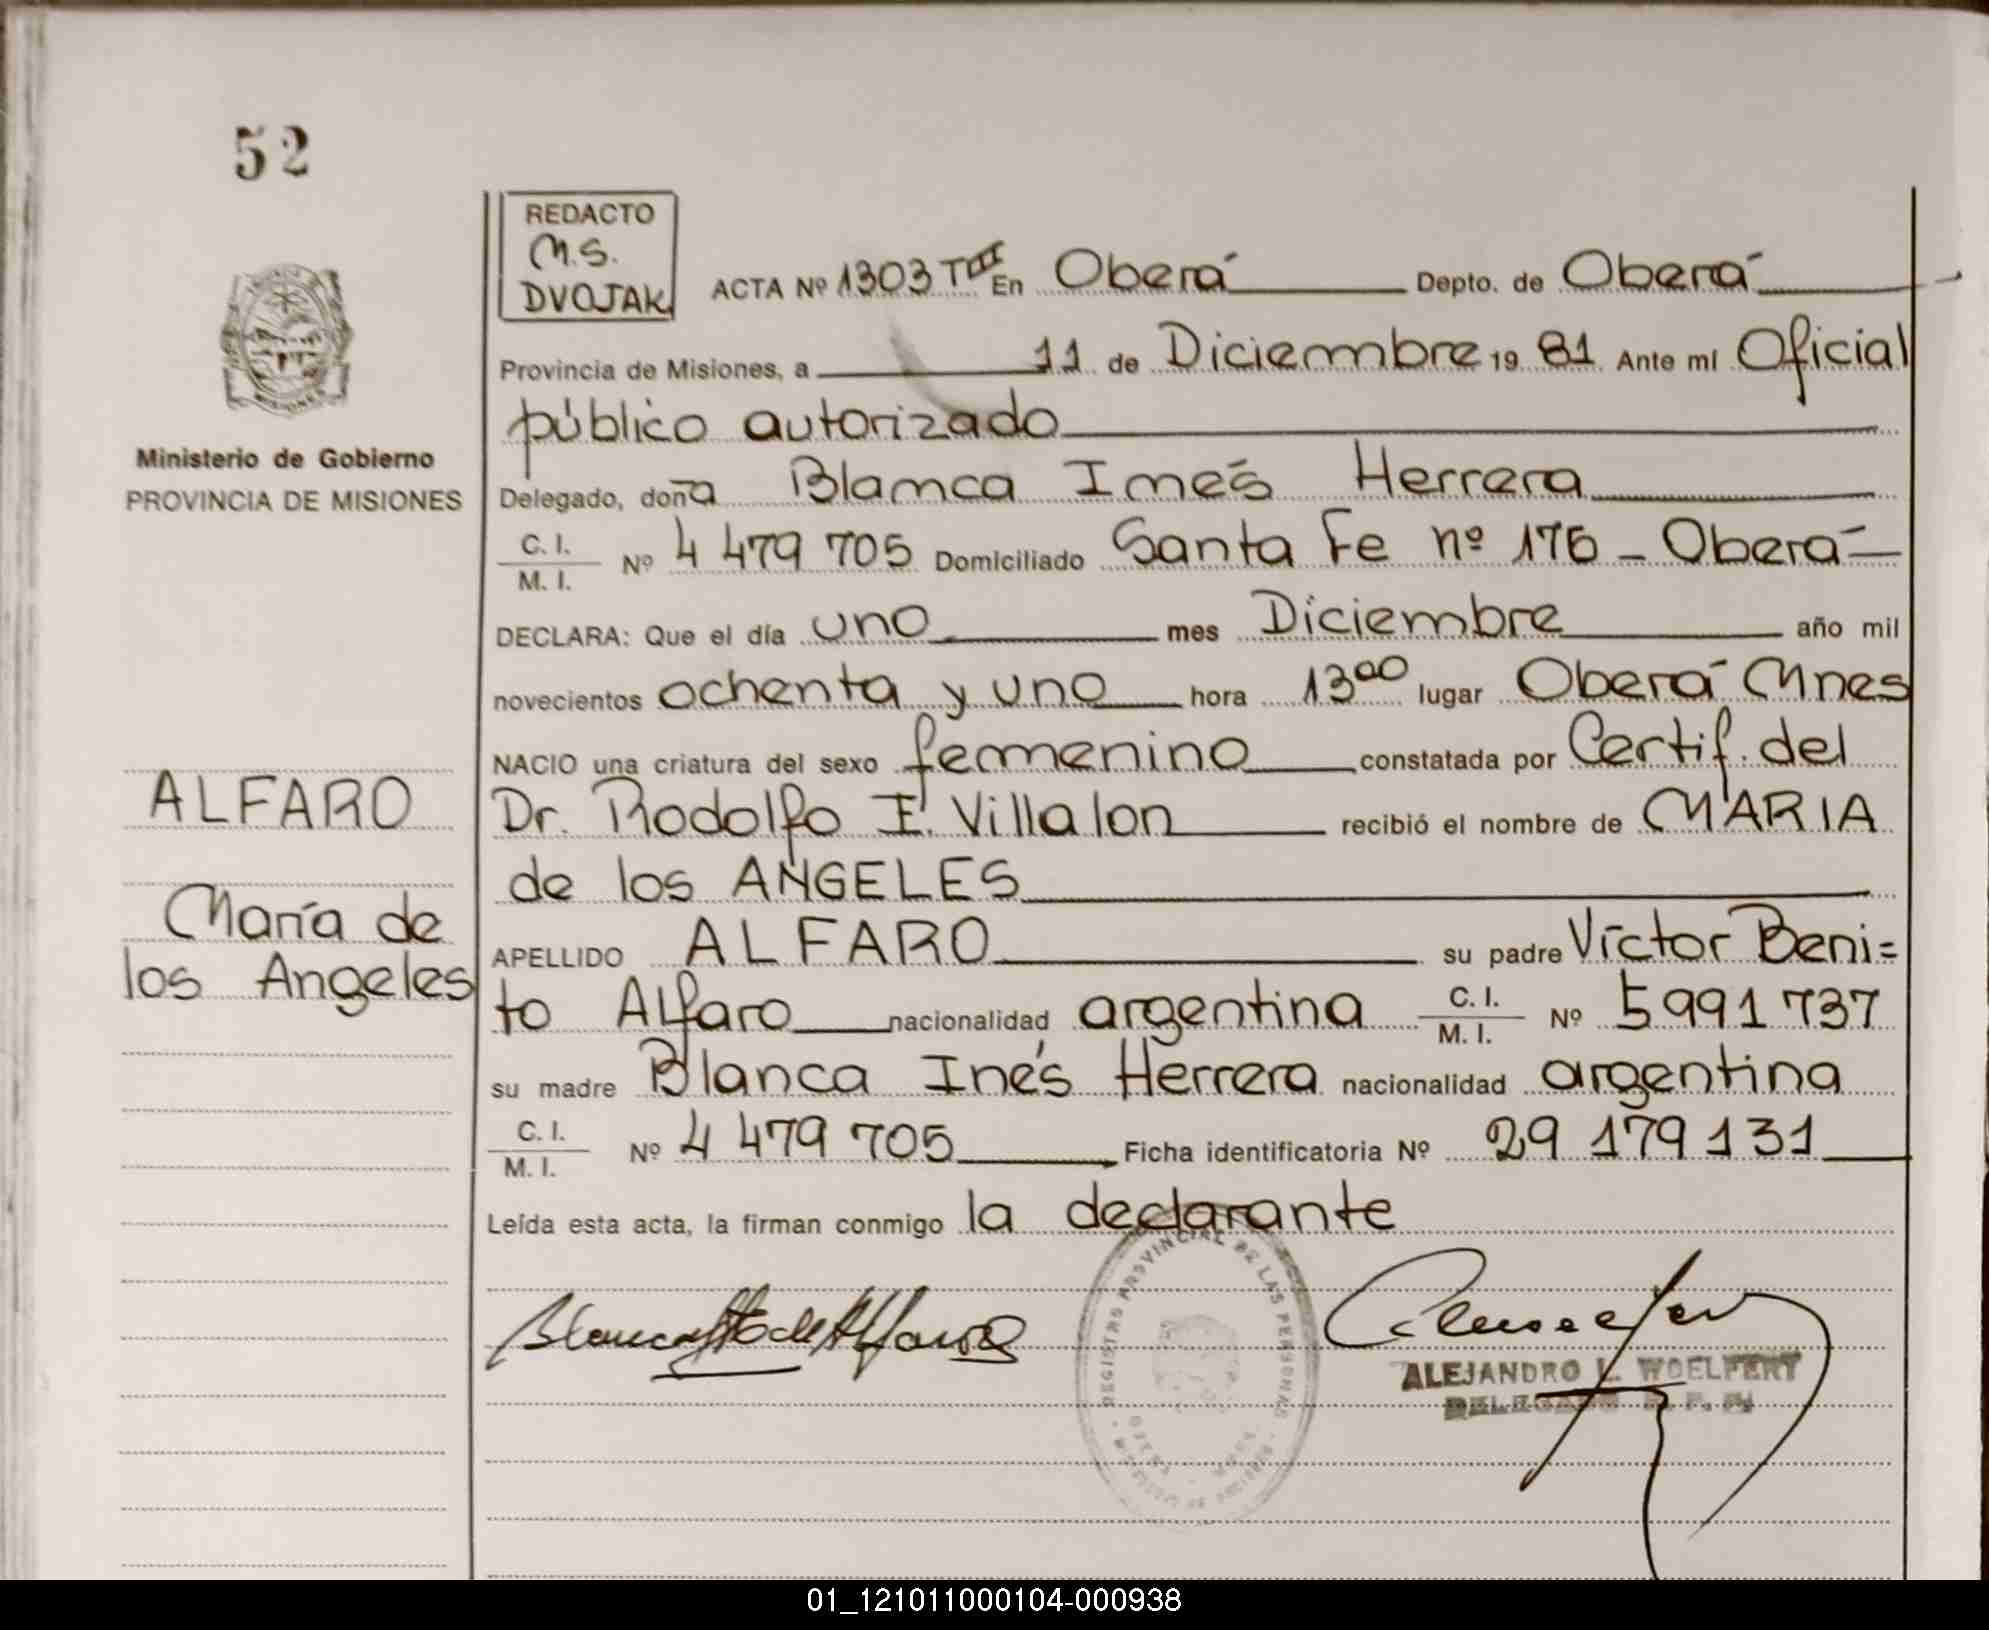 52
REDACTO
M.S.
DVOJAK
ACTA Nº 1303 TºIII En Oberá Depto. de Oberá
Provincia de Misiones, a 11 de Diciembre 19 81 Ante mí Oficial
público autorizado
Ministerio de Gobierno
PROVINCIA DE MISIONES
Delegado, doña Blanca Inés Herrera
C. I.
M. I. Nº 4 479 705 Domiciliado Santa Fe nº 176 - Oberá
DECLARA: Que el día uno mes Diciembre año mil
novecientos ochenta y uno hora 13⁰⁰ lugar Oberá Mnes
NACIO una criatura del sexo femenino constatada por Certif. del
ALFARO
Dr. Rodolfo E. Villalon recibió el nombre de MARIA
de los ANGELES
María de
los Angeles
APELLIDO ALFARO su padre Víctor Beni=
to Alfaro nacionalidad argentina C. I.
M. I. Nº 5 991 737
su madre Blanca Inés Herrera nacionalidad argentina
C. I.
M. I. Nº 4 479 705 Ficha identificatoria Nº 29 179 131
Leída esta acta, la firman conmigo la declarante
REGISTRO PROVINCIAL DE LAS PERSONAS
ALEJANDRO L. WOELFERT
DELEGADO R. P. P.
01_121011000104-000938